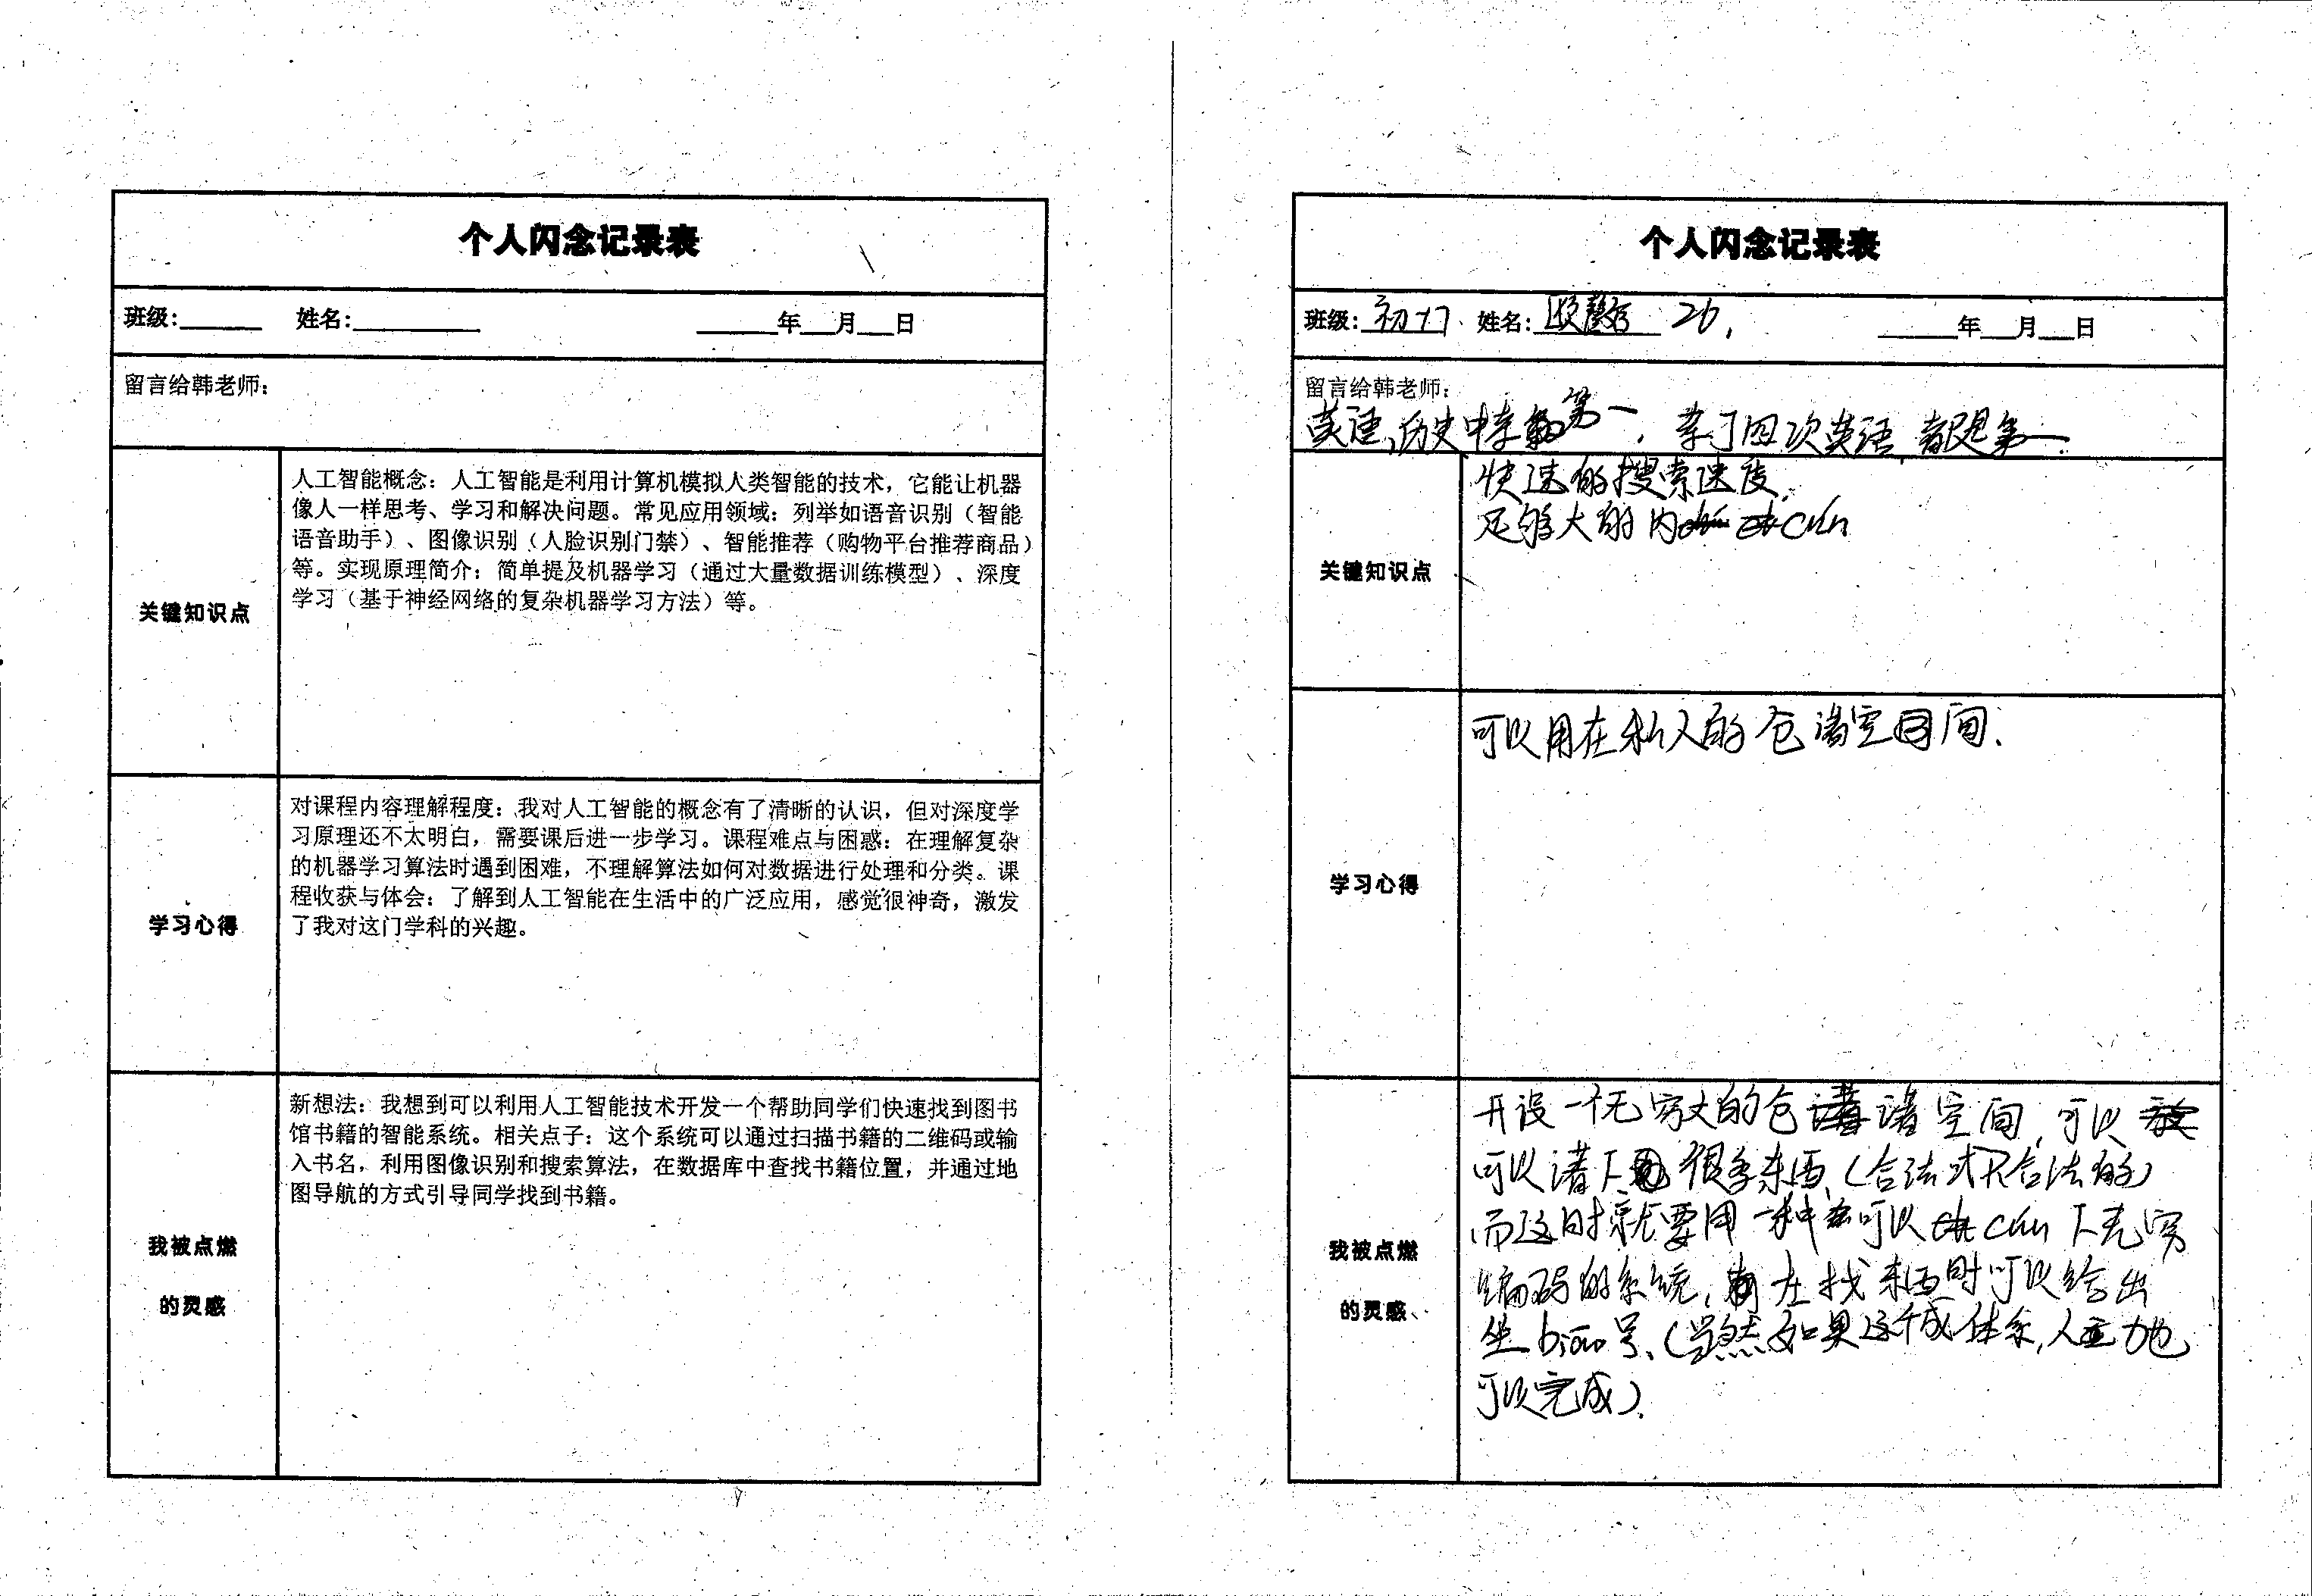 个人闪念记录表
班级:______ 姓名:_________ ______年___月___日
留言给韩老师:
关键知识点
人工智能概念:人工智能是利用计算机模拟人类智能的技术,它能让机器
像人一样思考、学习和解决问题。常见应用领域:列举如语音识别(智能
语音助手)、图像识别(人脸识别门禁)、智能推荐(购物平台推荐商品)
等。实现原理简介:简单提及机器学习(通过大量数据训练模型)、深度
学习(基于神经网络的复杂机器学习方法)等。
学习心得
对课程内容理解程度:我对人工智能的概念有了清晰的认识,但对深度学
习原理还不太明白,需要课后进一步学习。课程难点与困惑:在理解复杂
的机器学习算法时遇到困难,不理解算法如何对数据进行处理和分类。课
程收获与体会:了解到人工智能在生活中的广泛应用,感觉很神奇,激发
了我对这门学科的兴趣。
我被点燃
的灵感
新想法:我想到可以利用人工智能技术开发一个帮助同学们快速找到图书
馆书籍的智能系统。相关点子:这个系统可以通过扫描书籍的二维码或输
入书名,利用图像识别和搜索算法,在数据库中查找书籍位置,并通过地
图导航的方式引导同学找到书籍。
个人闪念记录表
班级: 姓名: 26. ______年___月___日
留言给韩老师:
英语、历史中考第一,考了四次英语,都是第一.
关键知识点
快速的搜索速度.
足够大的内cún
学习心得
可以用在私人的仓诸空间.
我被点燃
的灵感
开设一个无穷大的仓诸空间,可以
可以诸下很多东西,(合法或不合法的)
而这时就要用一种可以cún下无穷
编码的系统,在找东西时可以给出
坐biāo号、(当然如果这个成体系,人工也
可以完成).